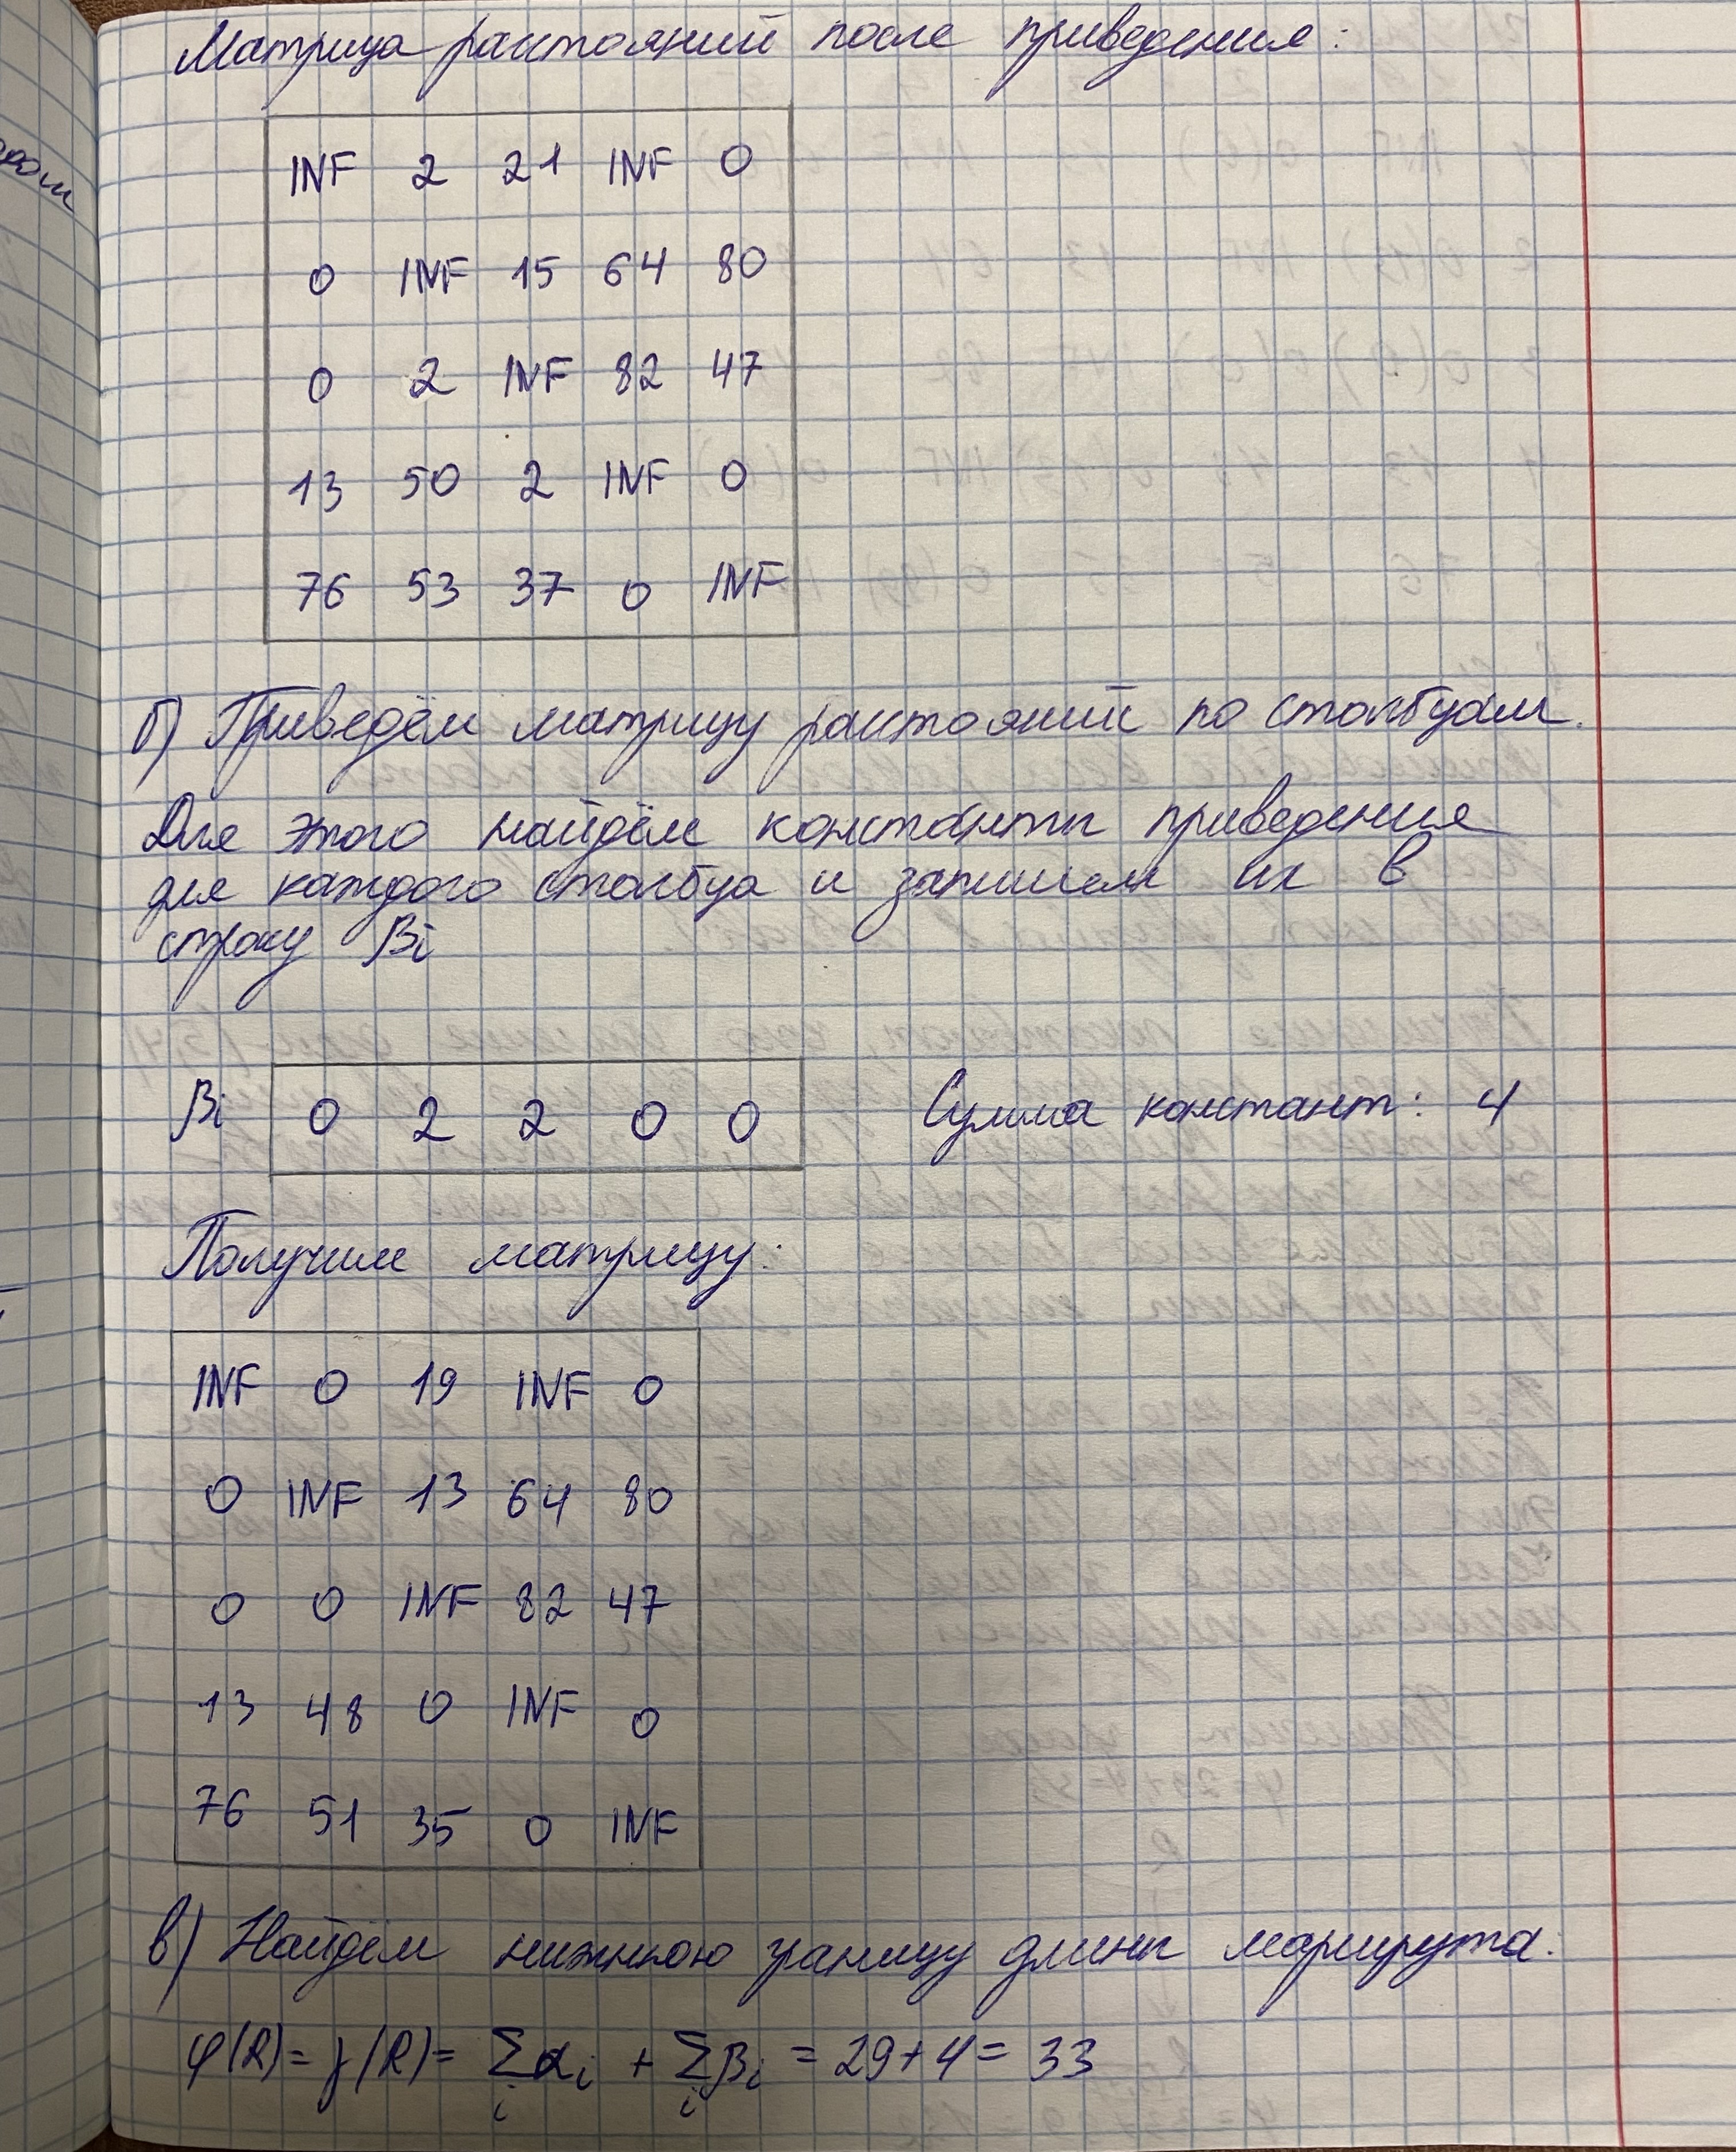 Матрица расстояний после приведения:
INF 2 21 INF 0
0 INF 15 64 80
0 2 INF 82 47
13 50 2 INF 0
76 53 37 0 INF
б) Приведём матрицу расстояний по столбцам.
Для этого найдём константы приведения
для каждого столбца и запишем их в
строку βi
βi 0 2 2 0 0 Сумма констант: 4
Получим матрицу:
INF 0 19 INF 0
0 INF 13 64 80
0 0 INF 82 47
13 48 0 INF 0
76 51 35 0 INF
в) Найдём нижнюю границу длины маршрута.
φ(R) = γ(R) = Σ αi + Σ βi = 29 + 4 = 33
i i